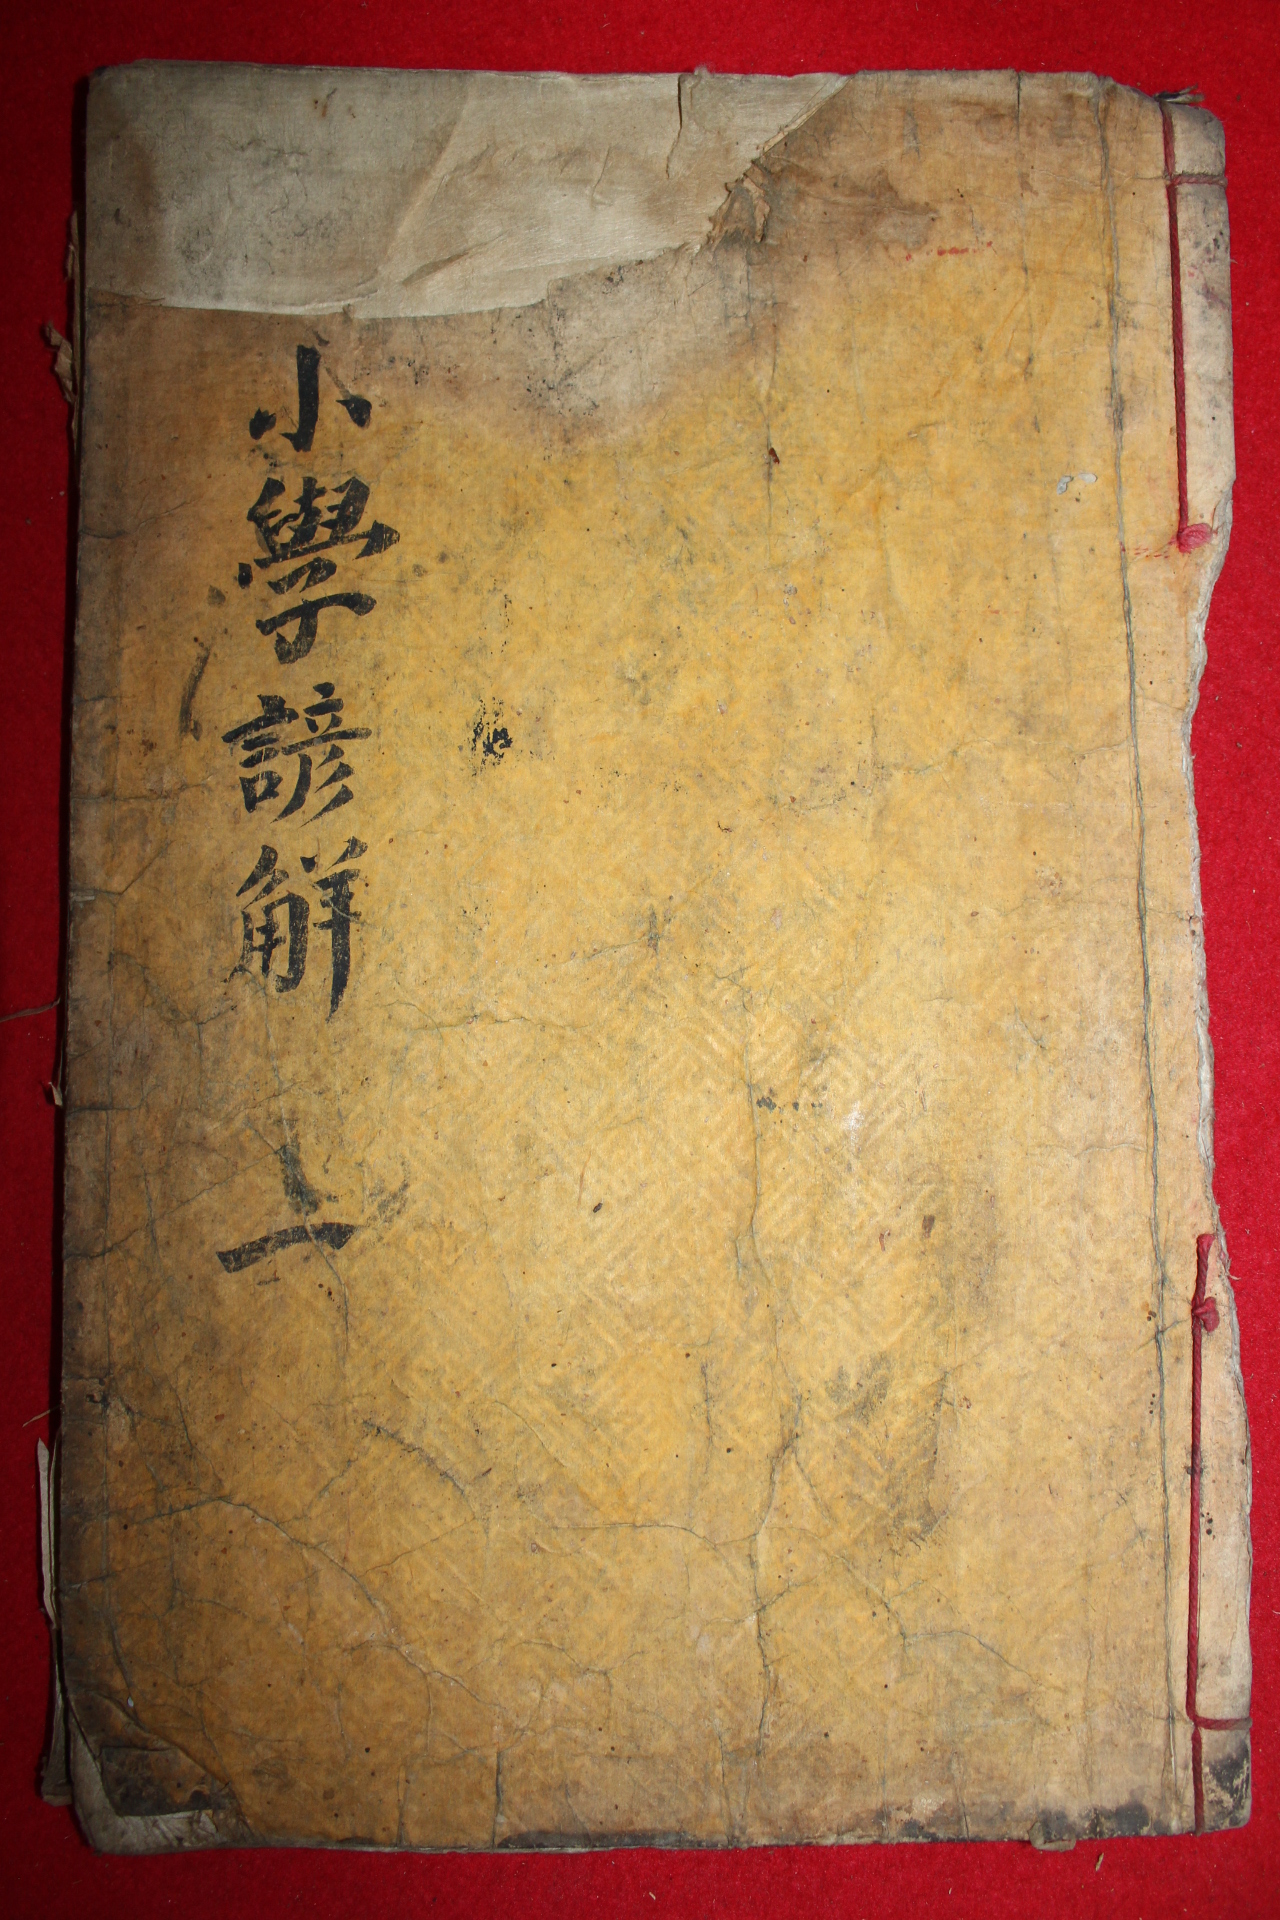 小學諺觧 上